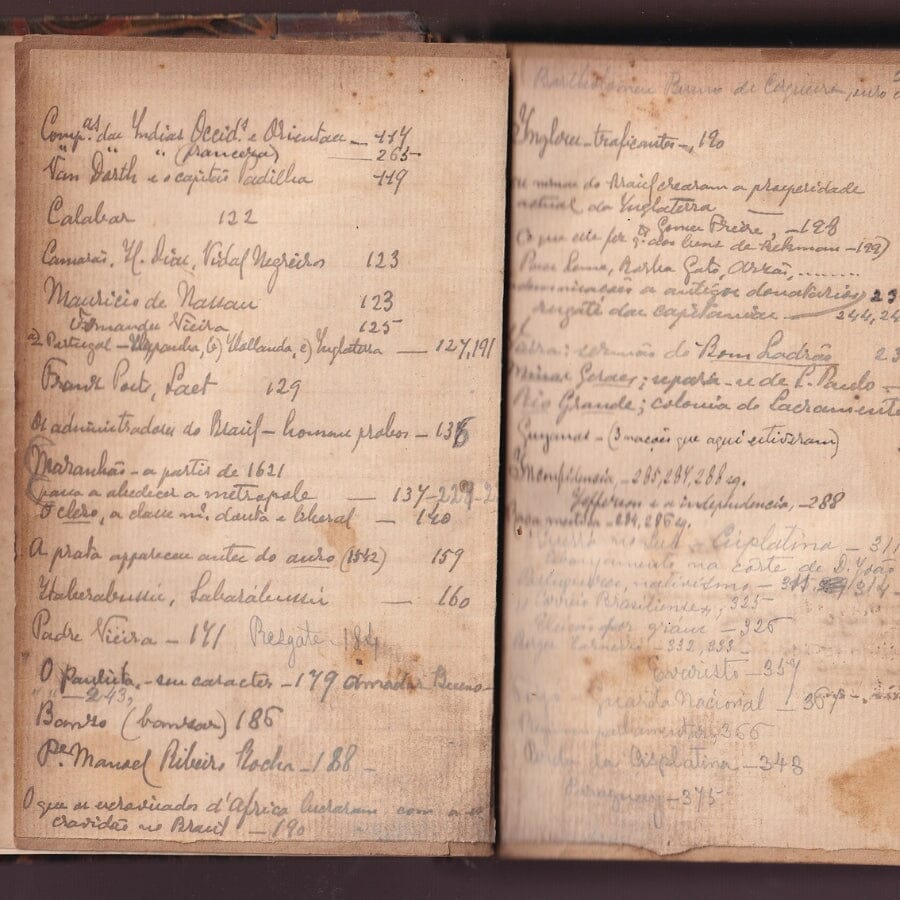 Comp.as das Indias Occid.s e Orientaes — 117
" " " (franceza) — 265
Van Dorth e o capitão Padilha 119
Calabar 122
Camarão, H. Dias, Vidal Negreiros 123
Mauricio de Nassau 123
Fernandes Vieira 125
a) Portugal — Hespanha, b) Hollanda, c) Inglaterra — 127, 191
Franz Post, Laet 129
Os administradores do Brasil — homens probos — 136
Maranhão — a partir de 1621
passa a obedecer a metropole — 137-229-2
O clero, a classe m. douta e liberal — 140
A prata appareceu antes do ouro (1542) 159
Itaberabussú, Sabarábussú — 160
Padre Vieira — 171 Resgate — 184
O Paulista, — seu caracter — 179 Amador Bueno —
" " — 243,
Banzo (banzar) 186
P.e Manoel Ribeiro Rocha — 188 —
O que os escravisados d'Africa lucraram com a es
cravidão no Brasil — 190
Bartholomeu Bueno de Cerqueira, ouro
Inglezes — traficantes —, 190
minas do Brasil crearam a prosperidade
actual da Inglaterra
Gomes Freire, — 198
(O que elle fez dos bens de Bekman — 199)
Paes Leme, Borba Gato, Arzão, ........
a antigos donatarios 23
resgate das capitanias — 244, 24
Vieira: sermão do Bom Ladrão 23
Minas Geraes; separa-se de S. Paulo —
Rio Grande; colonia do Sacramento
Guyanas — (3 nações que aqui estiveram)
Inconfidencia, — 285, 287, 288 sg.
Jefferson e a independencia, — 288
— 284, 286 sg.
Cisplatina — 311
na corte de D. João
Portuguezes, nativismo — 314 —
Correio Brasiliense, 325
— 326
Borges Carneiro — 332, 333 —
Evaristo — 357
Guarda Nacional — 367
parlamentar, 366
Perda da Cisplatina — 348
Paraguay — 375